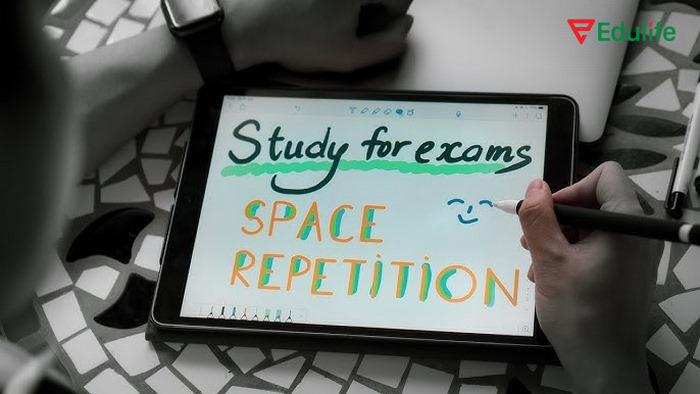 Edulife
Study for exams
SPACE
REPETITION